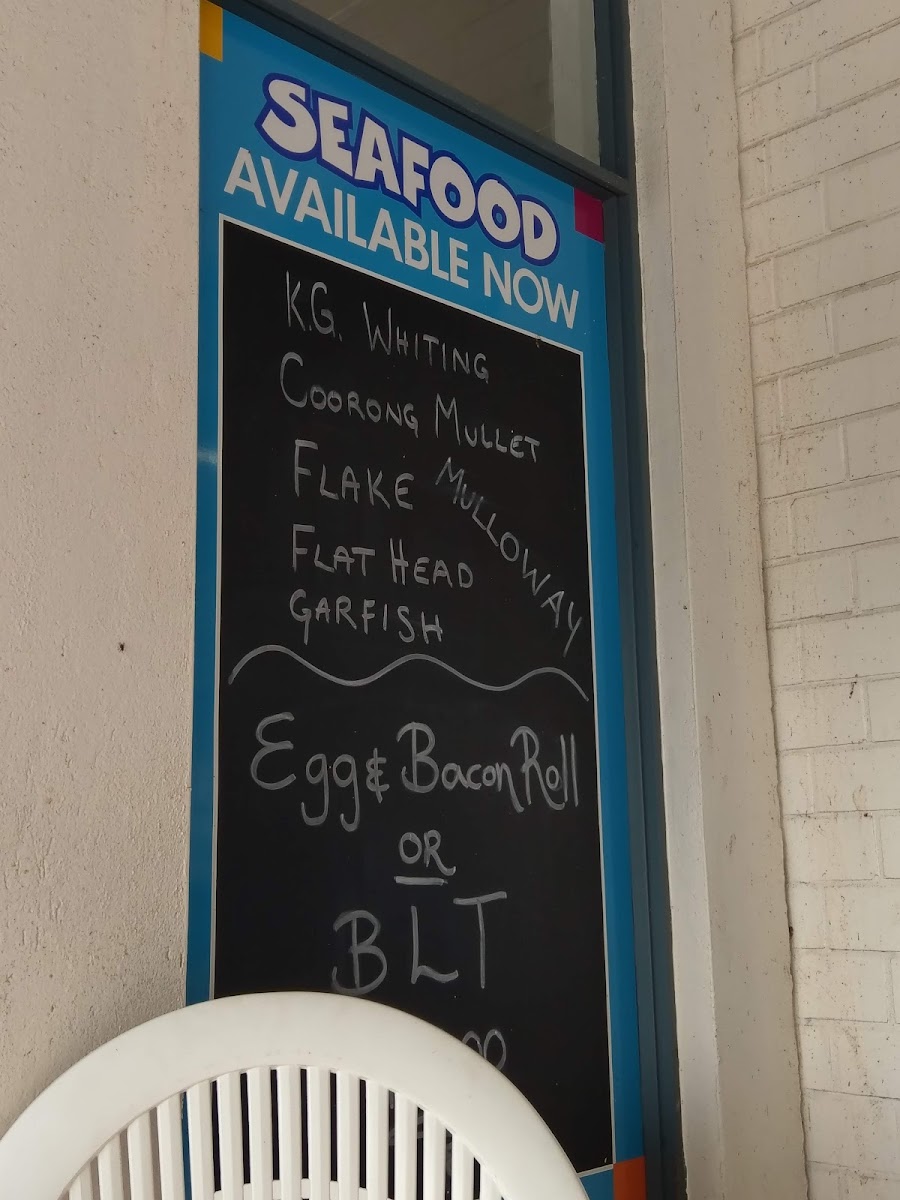 SEAFOOD
AVAILABLE NOW
K.G. WHITING
COORONG MULLET
FLAKE
MULLOWAY
FLAT HEAD
GARFISH
Egg & Bacon Roll
OR
BLT